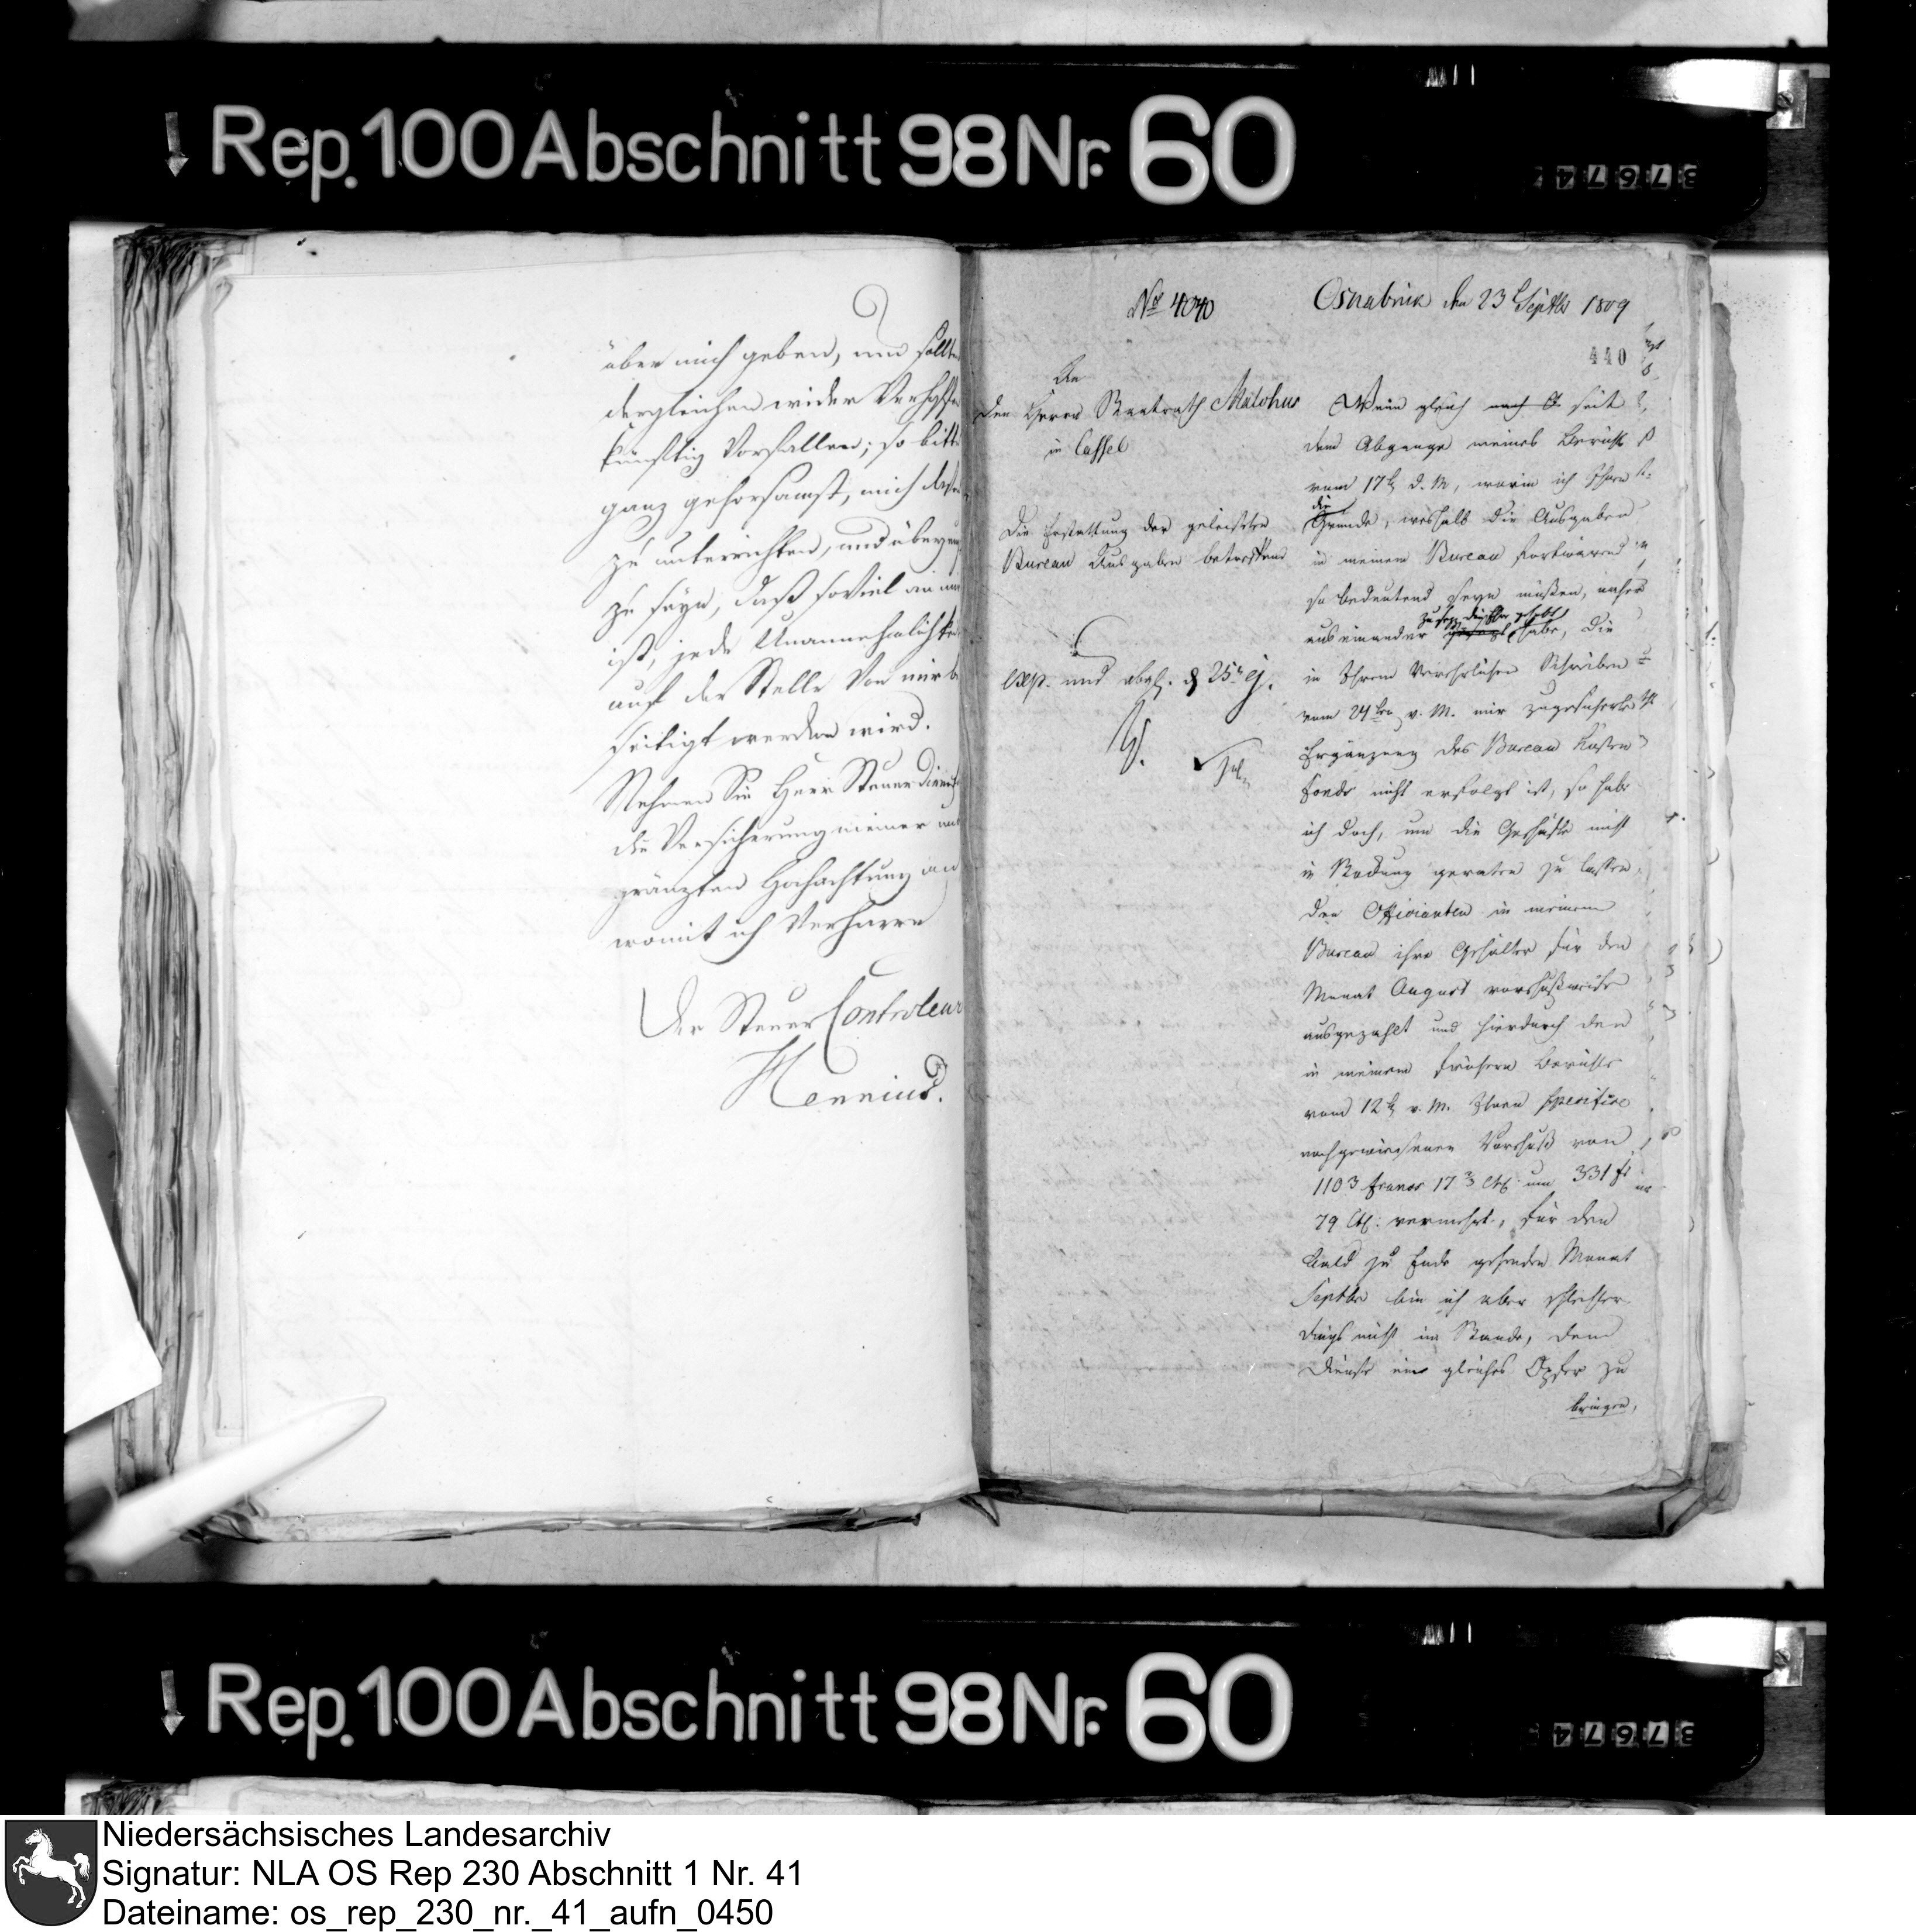 Rep. 100 Abschnitt 98 Nr. 60
37674
über mich geben, und sollte
dergleichen wider Verhoffen
künftig Vorfallen; so bitte
ganz gehorsamst, mich davon
zu unterrichten, und überzeugt
zu seyn, daß soviel an mir
ist, jede Unannehmlichkeit
auf der Stelle Von mir be
seitigt werden wird.
Nehmen Sie Herr Steuer Director
die Versicherung meiner unbe
gränzten Hochachtung an
womit ich Verharre
Der Steuer Controleur
Hennind.
No 4040
Osnabrük den 23 Septbr 1809
440
An
den Herrn Staatsrath Malchus
in Cassel
Die Erstattung der geleisteten
Bureau Ausgaben betreffend
exp. und abges. d 25 ej.
Wenn gleich nach d. seit
dem Abgange meines Berichts
vom 17ten d. M., worin ich Ihnen
die
Gründe, weshalb die Ausgaben
in meinem Bureau fortwärend
so bedeutend seyn müßen, näher
auseinander gesezt habe, die
in Ihrem Verehrlichen Schreiben
vom 24ten v. M. mir zugesicherte
Ergänzung des Bureau Kosten
Fonds nicht erfolgt ist, so habe
ich doch, um die Geschäfte nicht
in Stockung geraten zu lassen,
den Officianten in meinem
Bureau ihre Gehälter für den
Monat August vorschußweise
ausgezahlt und hierdurch den
in meinem frühern Berichte
vom 12ten v. M. Ihnen specifice
nachgewiesenen Vorschuß von
1103 Francs 17 3 Cts. um 331 fr
79 Cts. vermehrt, für den
bald zu Ende gehenden Monat
Septbr bin ich aber schlechter
dings nicht im Stande, dem
Dienste ein gleiches Opfer zu
bringen,
Rep. 100 Abschnitt 98 Nr. 60
37674
Niedersächsisches Landesarchiv
Signatur: NLA OS Rep 230 Abschnitt 1 Nr. 41
Dateiname: os_rep_230_nr._41_aufn_0450